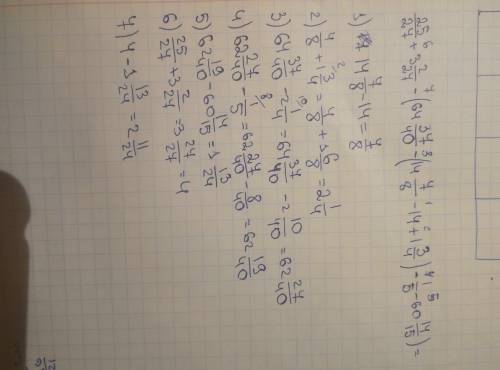 22/24 + 3 2/24 - (64 37/40 - (14 4/8 - 14 + 1 3/4) - 1/5 - 60 14/15) =
1) 14 4/8 - 14 = 4/8
2) 4/8 + 1 3/4 = 4/8 + 1 6/8 = 2 1/4
3) 64 37/40 - 2 1/4 = 64 37/40 - 2 10/40 = 62 27/40
4) 62 27/40 - 1/5 = 62 27/40 - 8/40 = 62 19/40
5) 62 19/40 - 60 14/15 = 1 13/24
6) 22/24 + 3 2/24 = 3 24/24 = 4
7) 4 - 1 13/24 = 2 11/24